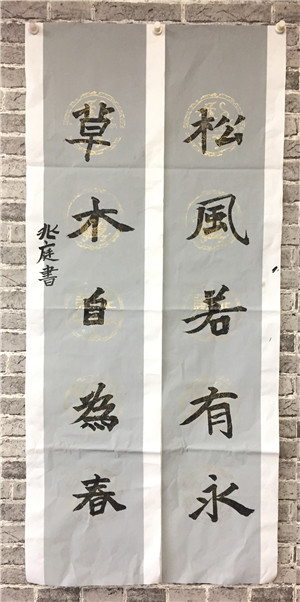 松風若有永
草木自為春
兆庭書